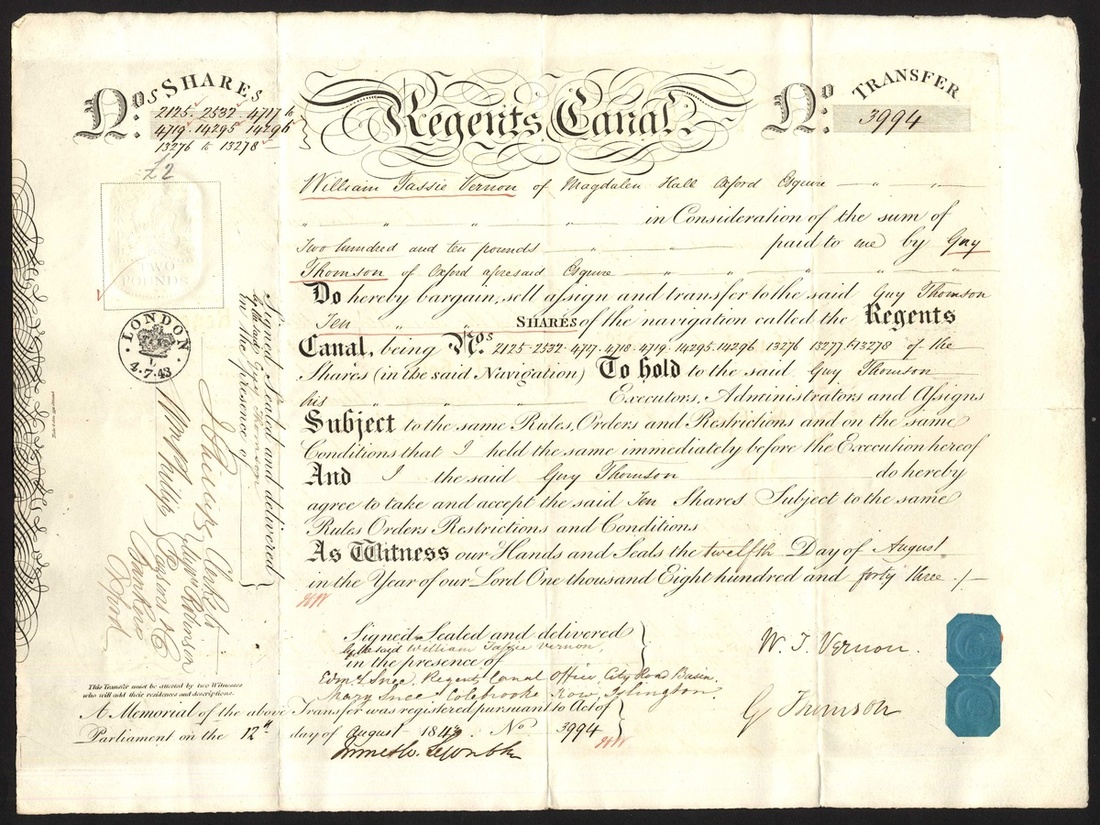 Nos SHARES
2125. 2532. 4717 to
4719. 14295. 14296
13276 to 13278
£2
TWO
POUNDS
LONDON
4.7.43
Regents Canal.
No. TRANSFER
3994
William Tassie Vernon of Magdalen Hall Oxford Esquire
in Consideration of the sum of
Two hundred and ten pounds paid to me by Guy
Thomson of Oxford aforesaid Esquire
Do hereby bargain, sell assign and transfer to the said Guy Thomson
Ten SHARES of the navigation called the Regents
Canal, being Nos. 2125. 2532. 4717. 4718. 4719. 14295. 14296. 13276 13277 & 13278 of the
Shares (in the said Navigation) To hold to the said Guy Thomson
his Executors, Administrators and Assigns
Subject to the same Rules, Orders and Restrictions and on the same
Conditions that I held the same immediately before the Execution hereof
And I the said Guy Thomson do hereby
agree to take and accept the said Ten Shares Subject to the same
Rules Orders Restrictions and Conditions
As Witness our Hands and Seals the twelfth Day of August
in the Year of our Lord One thousand Eight hundred and forty three
Signed Sealed and delivered
by the said William Tassie Vernon,
in the presence of
Edmd Snee. Regents Canal Office, City Road Basin.
Mary Snee Colebrooke Row, Islington
W. T. Vernon.
G Thomson
Signed Sealed and delivered
by the said Guy Thomson
in the presence of
Clerk to
Wm Phillips
Parsons & Co
Bankers
Oxford
This Transfer must be attested by two Witnesses
who will add their residences and descriptions.
A Memorial of the above Transfer was registered pursuant to Act of
Parliament on the 12th day of August 1843. No 3994